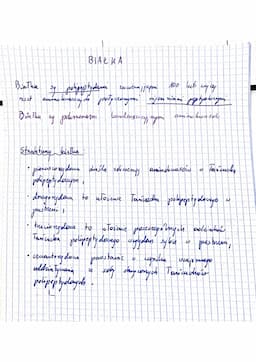 BIAŁKA
Białka są polipeptydami zawierającymi 100 lub więcej
reszt aminokwasowych połączonych wiązaniami peptydowymi
Białka są polimerami kondensacyjnymi aminokwasów
Struktury białka:
- pierwszorzędowa określa sekwencję aminokwasów w łańcuchu
polipeptydowym,
- drugorzędowa to ułożenie łańcucha polipeptydowego w
przestrzeni,
- trzeciorzędowa to ułożenie poszczególnych
łańcucha polipeptydowego względem siebie w przestrzeni,
- czwartorzędowa powstaje w wyniku wzajemnego
oddziaływania łańcuchów
polipeptydowych.